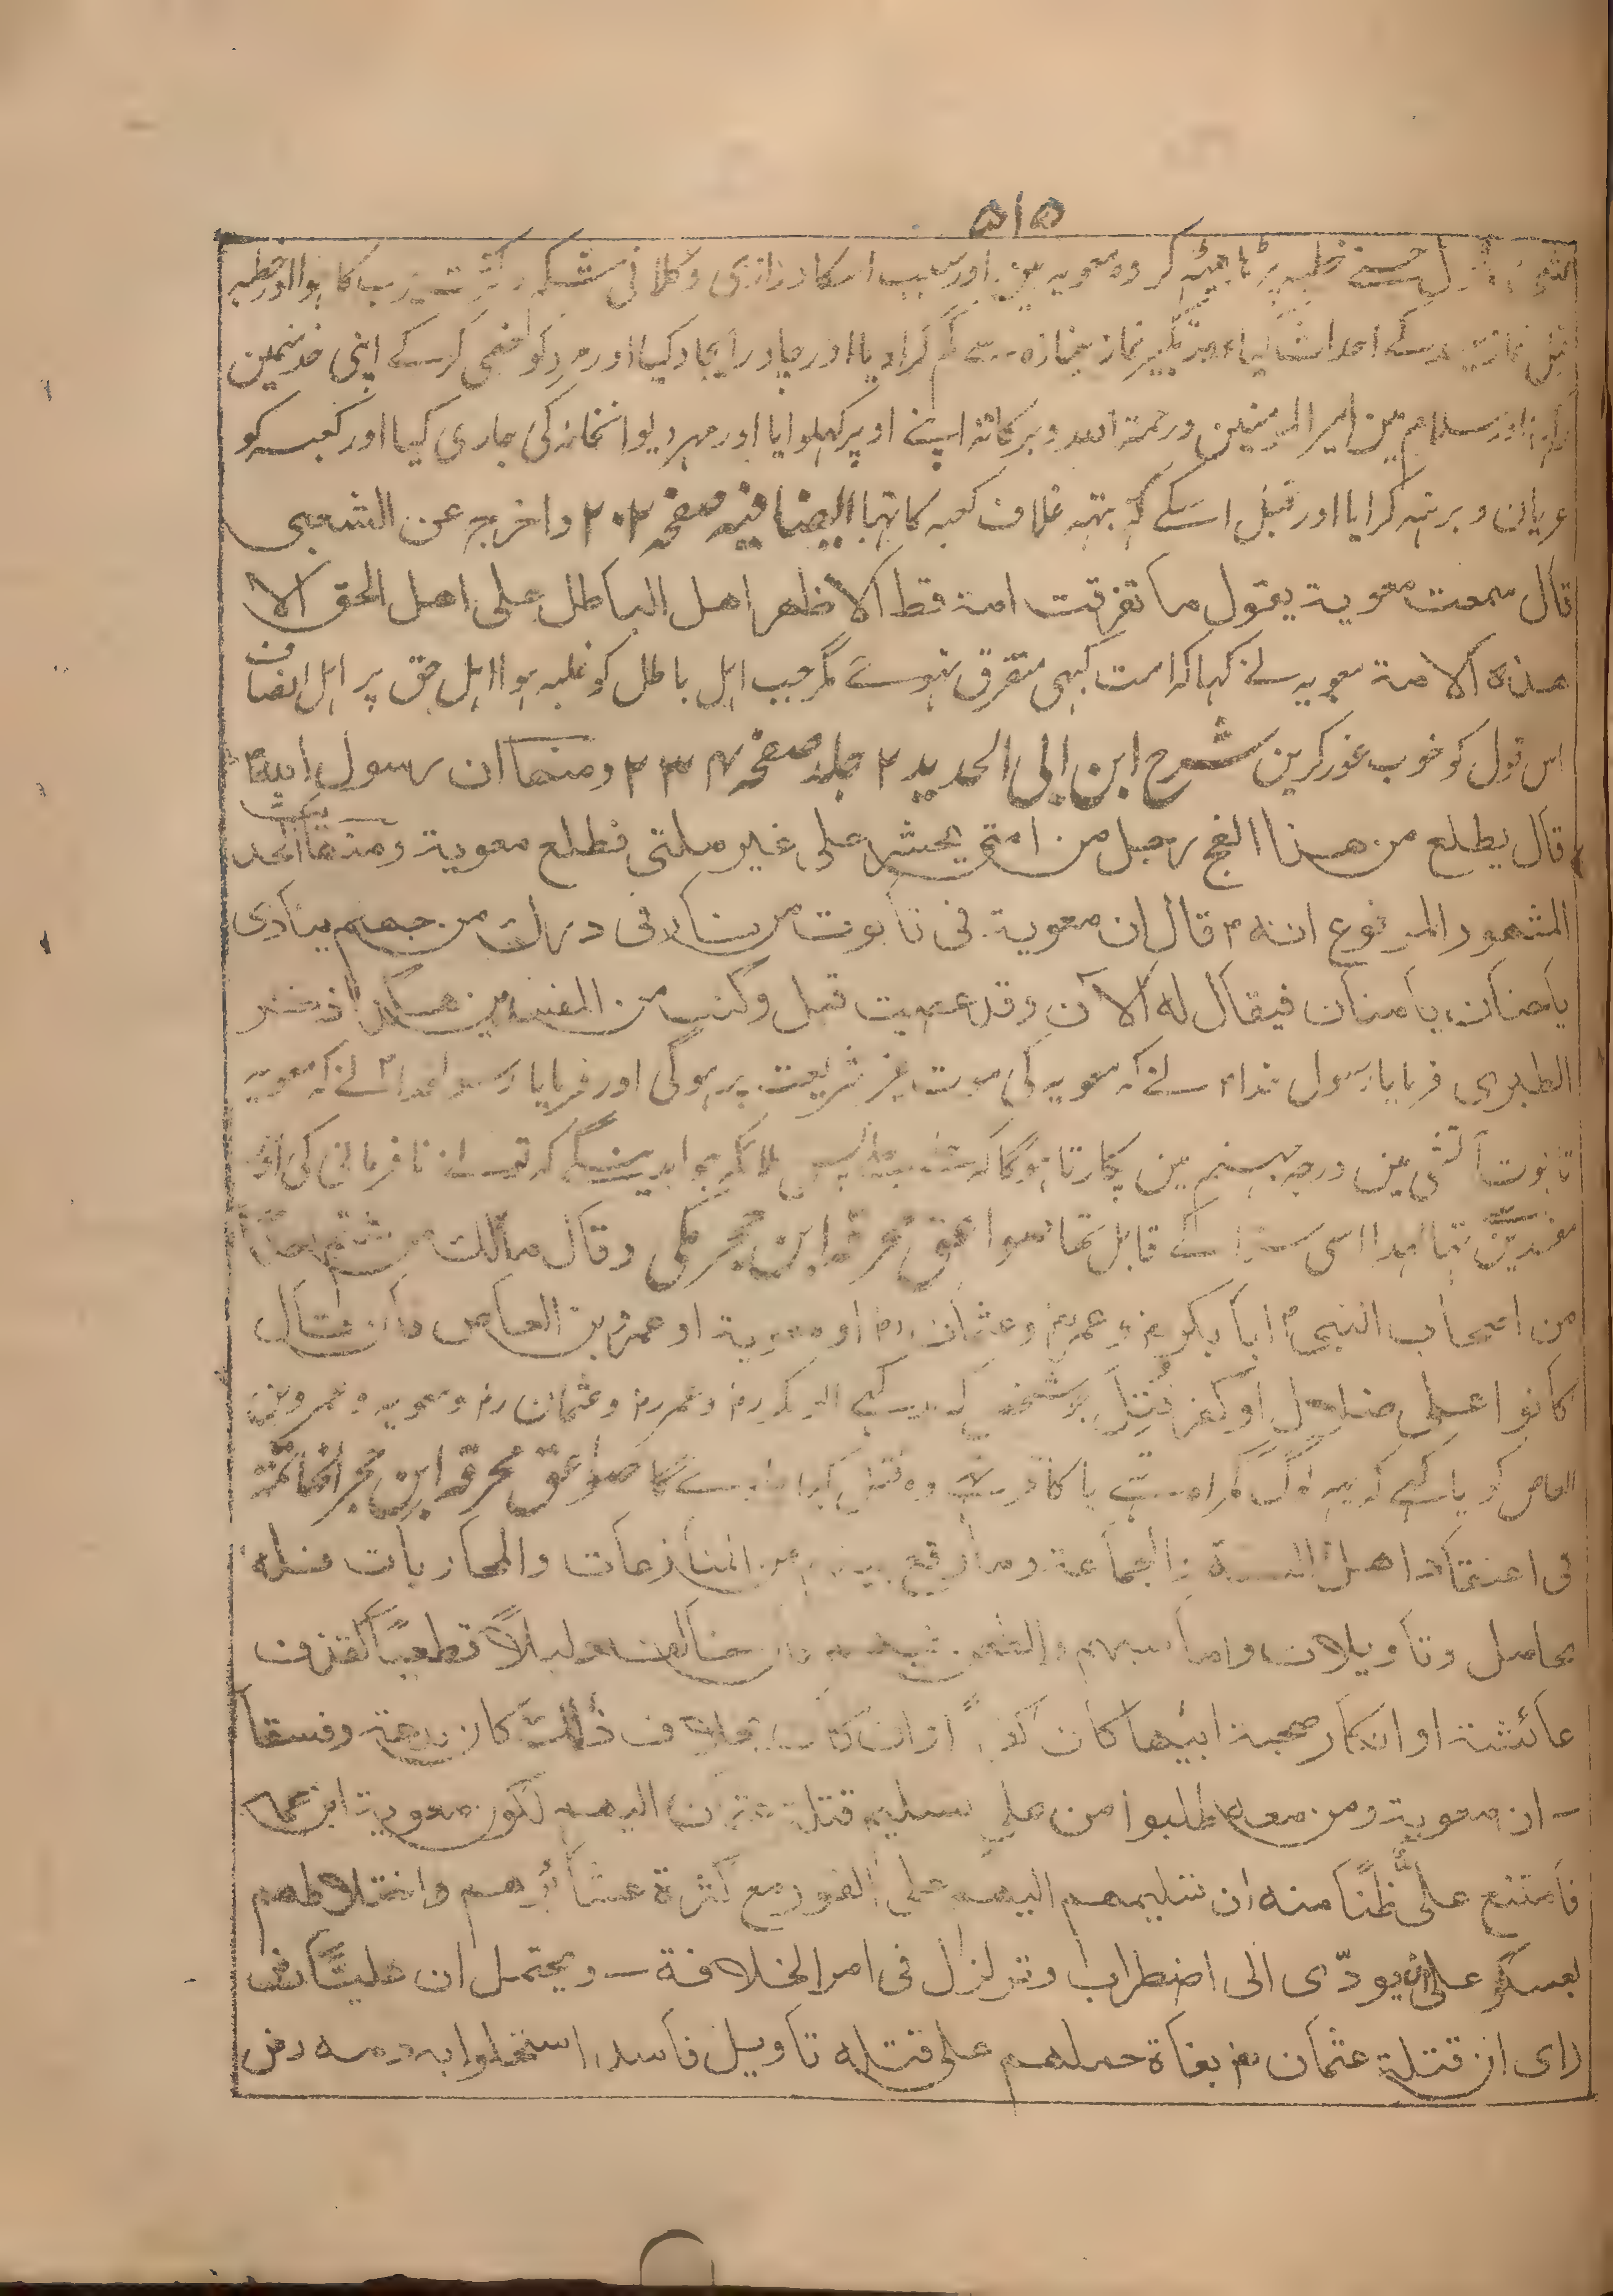 ۵۱۵
خطبہ بیٹھہ کر وہ معویہ ہین اور سبب اسکا درازی و کلانی شکم کا ہوا اور خطبہ
قبل نماز کے احداث کیا نماز جنازہ سے کم کرا دیا اور چادر ایجاد کیا اور مرد کو خصی کر کے اپنی خدمتمین
اور سلام مین امیر المومنین ورحمة اللہ وبرکاتہ اپنے اوپر کہلوایا اور مہر دیوانخانہ کی جاری کیا اور کعبہ کو
عریان و برہنہ کرایا اور قبل اسکے تہ بتہ غلاف کعبہ کا تہا ایضا فیہ صفحہ ۲۰۲ واخرج عن الشعبی
قال سمعت معویة یقول ما تفرقت امة قط الا ظهر اهل الباطل علی اهل الحق الا
هذہ الامة معویہ نے کہا کہ امت کبہی متفرق نہوے مگر جب اہل باطل کو غلبہ ہوا اہل حق پر اہل انصاف
اس قول کو خوب غور کرین شرح ابن ابی الحدید ۲ جلد صفحہ ۲۳۴ ومنها ان رسول اللہ
قال یطلع من هذا الفج رجل من امتی یحشر علی غیر ملتی فطلع معویة ومنها الحدیث
المشهور المرفوع انه قال ان معویة فی تابوت من نار فی درك من جهنم ینادی
یا حنان یا منان فیقال له الآن وقد عصیت قبل وکنت من المفسدین هکذا ذکر
الطبری فرمایا رسول خدا نے کہ معویہ کی موت غیر شریعت پر ہوگی اور فرمایا رسول خدا نے کہ معویہ
تابوت آتشی مین درجہ جہنم مین پکارتا ہوگا ملائکہ جواب دینگے کہ تمنے نا فرمانی کی اور
مفسدین تہا لہذا اسی سزا کے قابل تہا صواعق محرقہ ابن حجر مکی وقال مالك من شتم احدا
من اصحاب النبی ابا بکر وعمر وعثمان او معویة او عمرو بن العاص فان قال
کانوا علی ضلال او کفر قُتِلَ جو شخص کہ سب کہے ابو بکر و عمر و عثمان و معویہ و عمرو بن
العاص کو یا کہے کہ یہ لوگ گمراہ تہے یا کافر تہے وہ قتل کیا جاوے گا صواعق محرقہ ابن حجر الخاتمة
فی اعتقاد اهل السنة والجماعة وما وقع بینهم من المنازعات والمحاربات فله
محامل وتاویلات واما سبهم والطعن فیهم فان خالف دلیلاً قطعیاً کقذف
عائشة او انکار صحبة ابیها کان کفراً وان کان بخلاف ذلك کان بدعة وفسقا
– ان معویة ومن معه طلبوا من علی تسلیم قتلة عثمان الیهم لکون معویة ابن عمه
فامتنع علیٌّ ظنًا منه ان تسلیمهم الیهم علی الفور مع کثرة عشائرهم واختلاطهم
بعسکر علی یودّی الی اضطراب وتزلزل فی امر الخلافة – ویحتمل ان علیًّا
رای ان قتلة عثمان بغاة حملهم علی قتله تاویل فاسد استحلوا به دمه